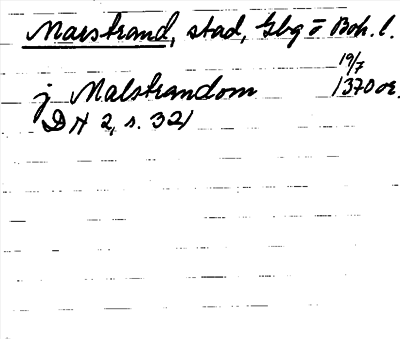 Marstrand, stad, Gbg o Boh. l.
19/7
j Malstrandom 1370 or.
DN 2, s. 321